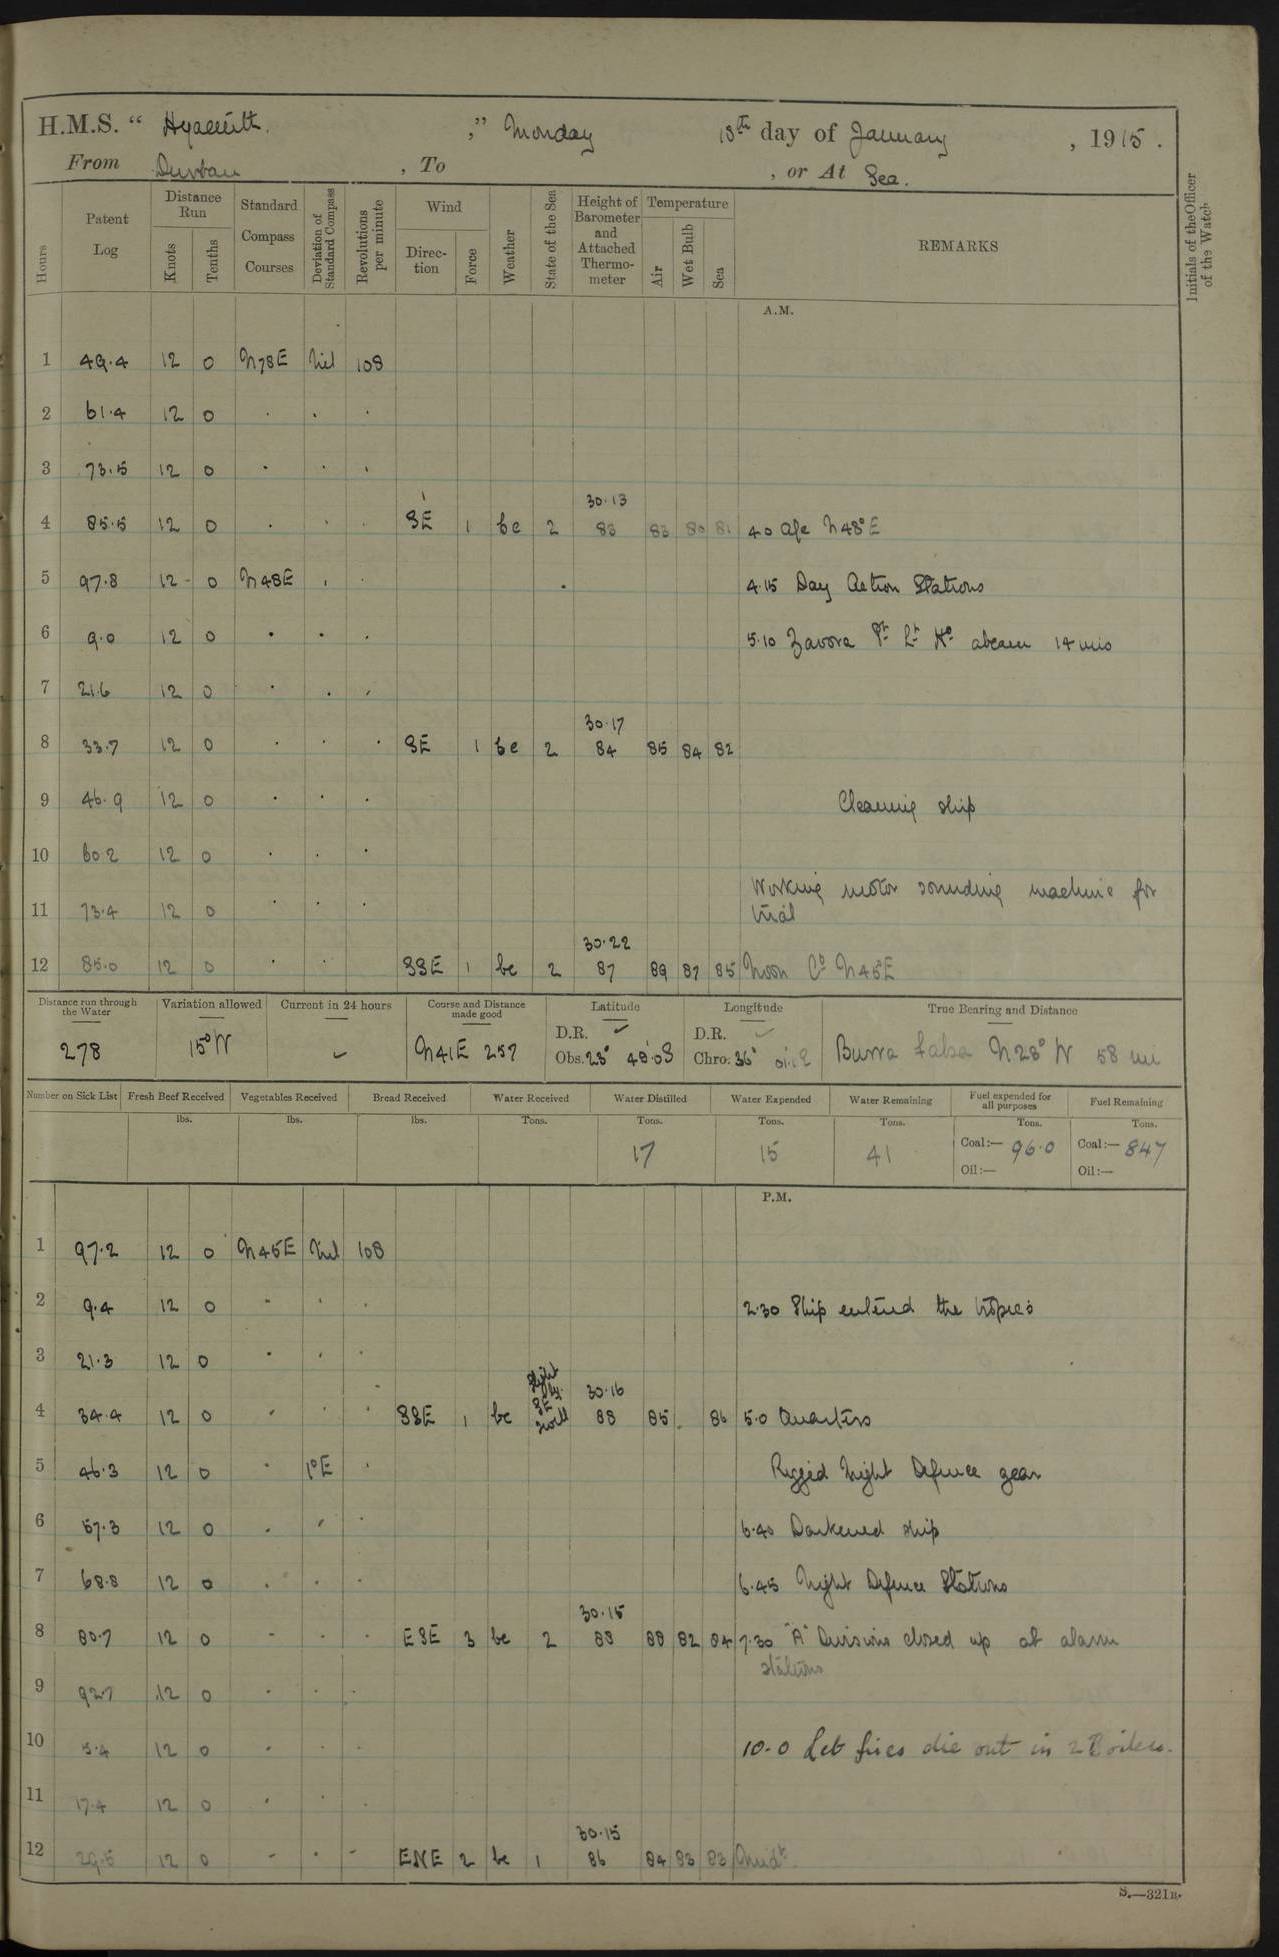 H.M.S. “ Hyacinth ,” Monday 18th day of January , 1915 .
From Durban , To , or At Sea.
Hours
Patent Log
Distance Run
Knots
Tenths
Standard Compass Courses
Deviation of Standard Compass
Revolutions per minute
Wind
Direc-tion
Force
Weather
State of the Sea
Height of Barometer and Attached Thermo-meter
Temperature
Air
Wet Bulb
Sea
REMARKS
Initials of the Officer of the Watch
A.M.
1 49.4 12 0 N78E Nil 108
2 61.4 12 0 . . .
3 73.5 12 0 . . .
30.13
4 85.5 12 0 . . . SE 1 bc 2 83 83 80 81 4.0 a/c N48°E
5 97.8 12 0 N48E . . 4.15 Day Action Stations
6 9.0 12 0 . . . 5.10 Zavora Pt Lt Ho abeam 14 mis
7 21.6 12 0 . . .
30.17
8 33.7 12 0 . . . SE 1 bc 2 84 85 84 82
9 46.9 12 0 . . . Cleaning ship
10 60.2 12 0 . . .
Working motor sounding machine for
11 73.4 12 0 . . . trial
30.22
12 85.0 12 0 . . SSE 1 bc 2 87 89 87 85 Noon Co N45E
Distance run through the Water
Variation allowed
Current in 24 hours
Course and Distance made good
Latitude
Longitude
True Bearing and Distance
D.R. ✓ D.R. ✓
278 15°W ✓ N41E 257 Obs. 23° 48'.0S Chro. 36° E Burra falsa N28°W 58 mi
Number on Sick List
Fresh Beef Received
Vegetables Received
Bread Received
Water Received
Water Distilled
Water Expended
Water Remaining
Fuel expended for all purposes
Fuel Remaining
lbs. lbs. lbs. Tons. Tons. Tons. Tons. Tons. Tons.
17 15 41 Coal:— 96.0 Coal:— 847
Oil:— Oil:—
P.M.
1 97.2 12 0 N45E Nil 108
2 9.4 12 0 - . . 2.30 Ship entered the tropics
3 21.3 12 0 . . .
Slight
30.16
SE
swell
4 34.4 12 0 . . . SSE 1 bc 88 85 . 86 5.0 Quarters
5 46.3 12 0 . 1°E . Rigged Night Defence gear
6 57.3 12 0 . . . 6.40 Darkened ship
7 68.8 12 0 . . . 6.45 Night Defence Stations
30.15
8 80.7 12 0 - . . ESE 3 bc 2 88 88 82 84 7.30 "A" Divisions closed up at alarm
stations
9 92.7 12 0 . . .
10 5.4 12 0 . . . 10.0 Let fires die out in 2 Boilers.
11 17.4 12 0 . . .
30.15
12 29.5 12 0 - . - ENE 2 bc 1 86 84 83 83 Midt.
S.—321B.